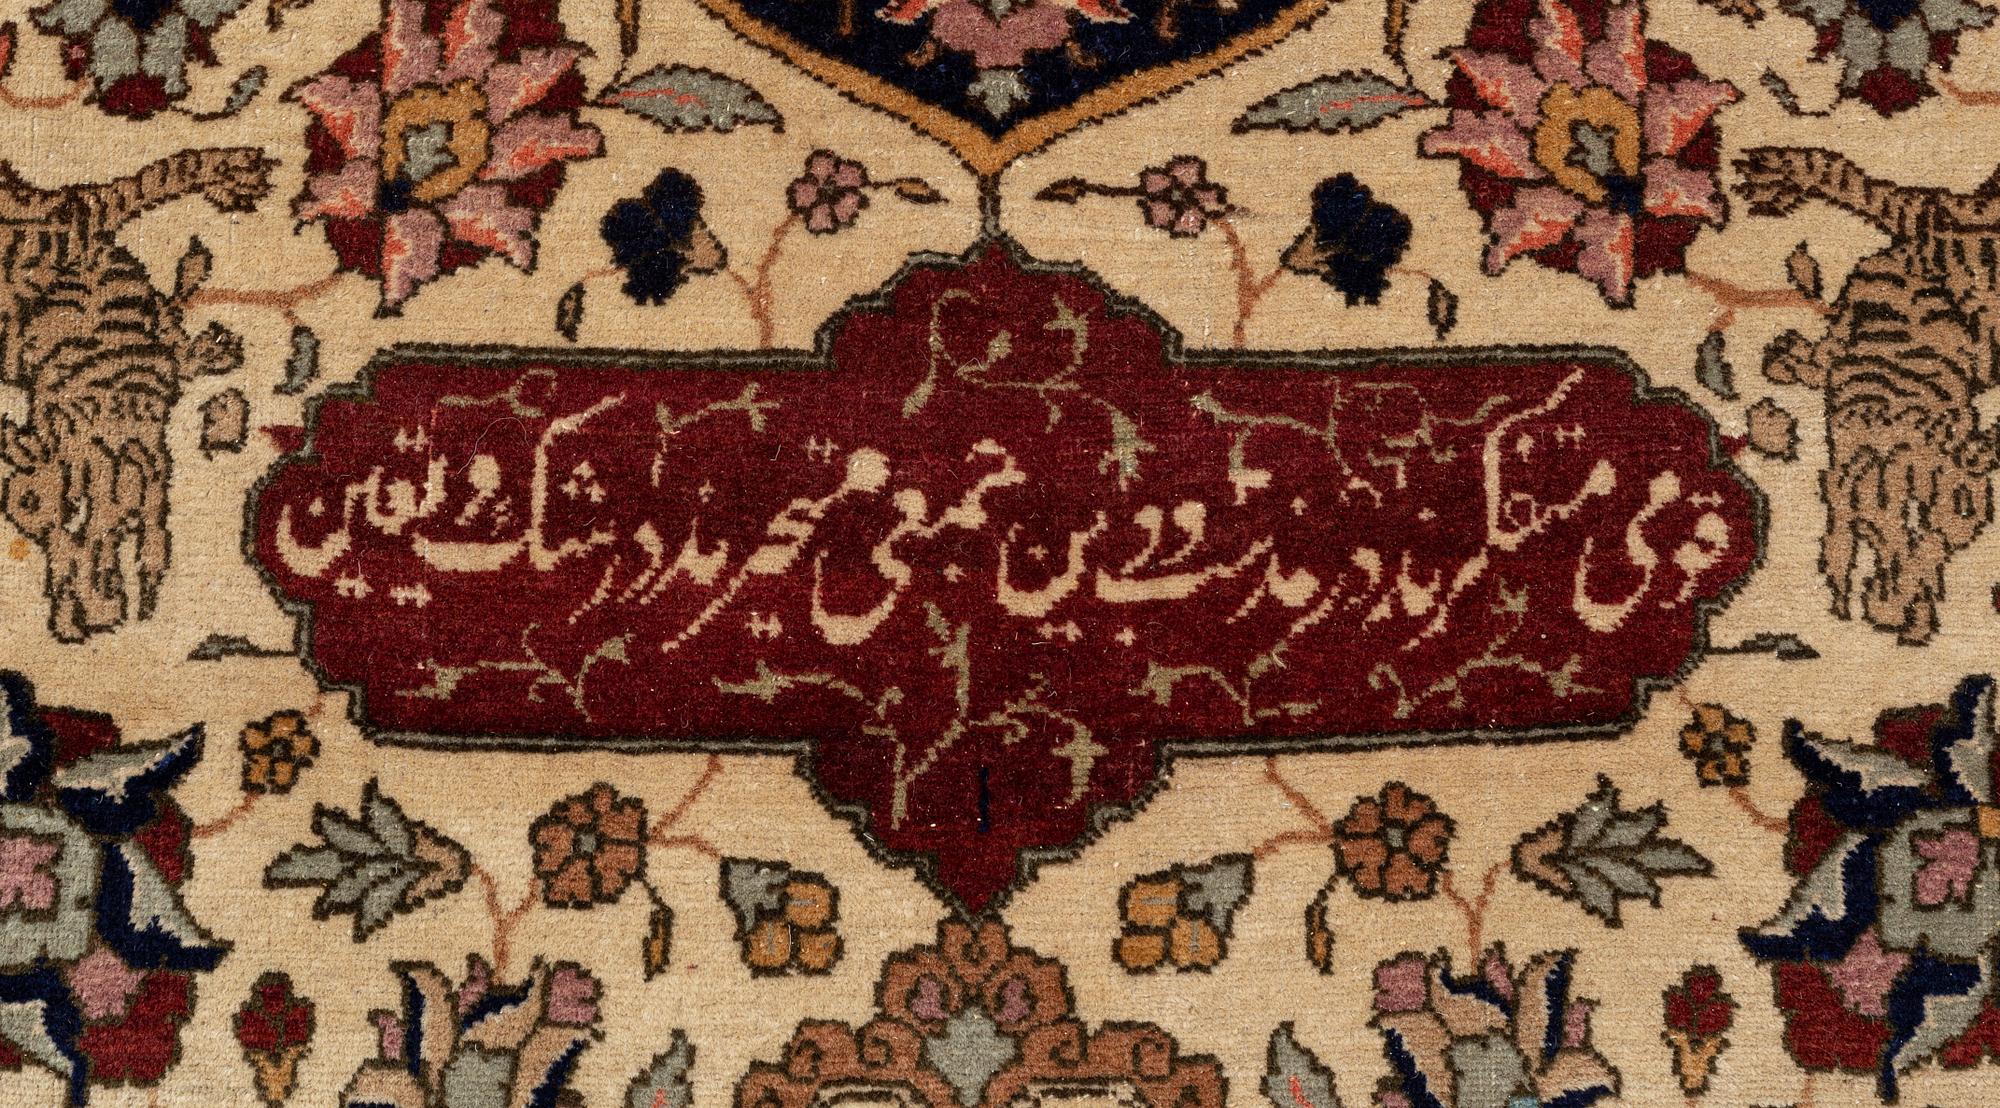 قومی متفکرند در مذهب و دین جمعی متحیرند در شک و یقین